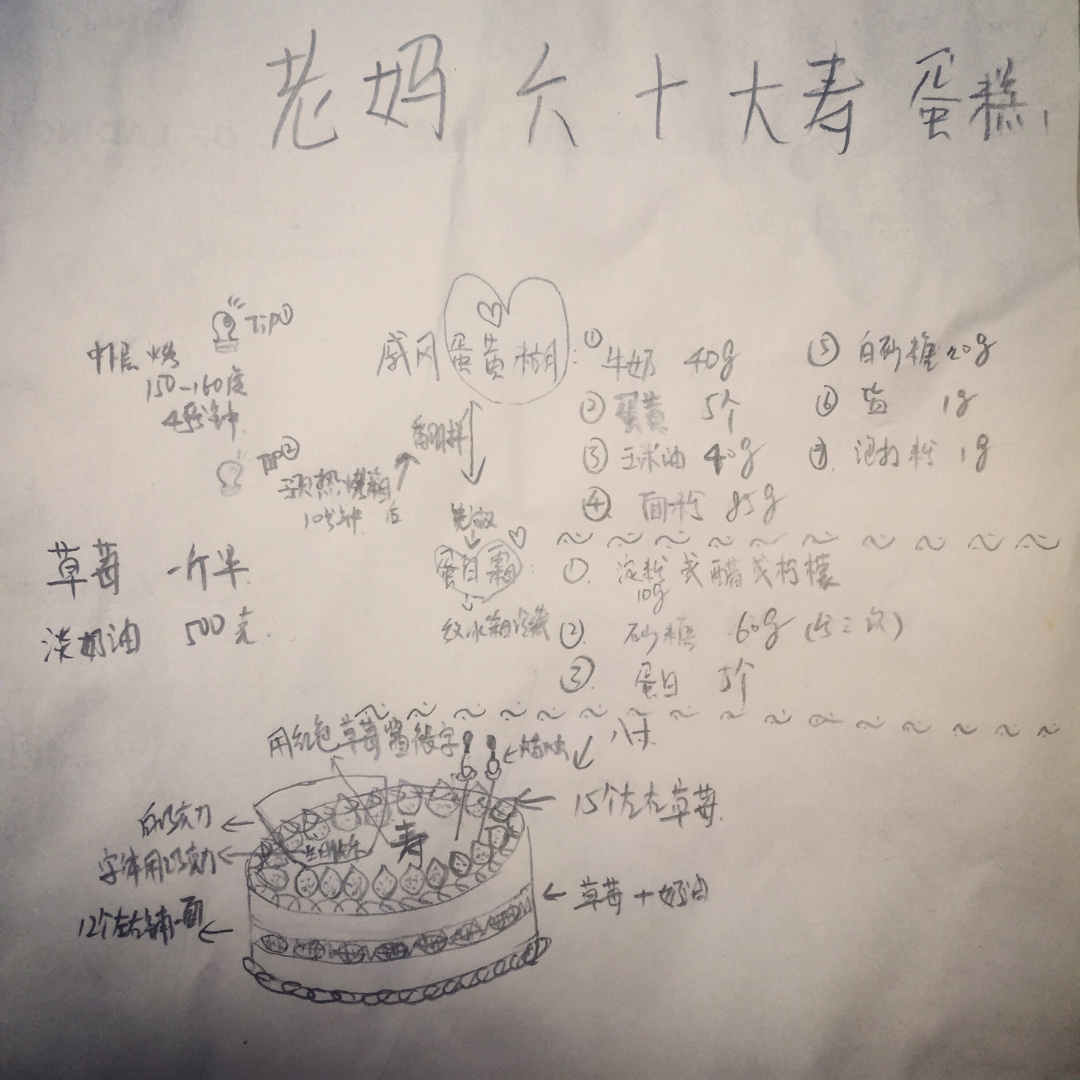 老妈六十大寿蛋糕
Tip①
中层烘
150-160度
4
戚风蛋黄糊：
①牛奶 40g
②蛋黄 5个
③玉米油 40g
④面粉 85g
⑤白砂糖20g
⑥盐 1g
⑦泡打粉 1g
翻拌
TIP②
预热烤箱
10分钟后
先放
蛋白霜：
放冰箱冷藏
①淀粉或醋或柠檬
10g
②砂糖 60g(分三次)
③蛋白 5个
草莓 一斤半
淡奶油 500克
八寸
用红色草莓酱 字
蜡烛
15个左右草莓
白巧克力
生日快乐
寿
字体用巧克力
草莓+奶油
12个左右铺一面